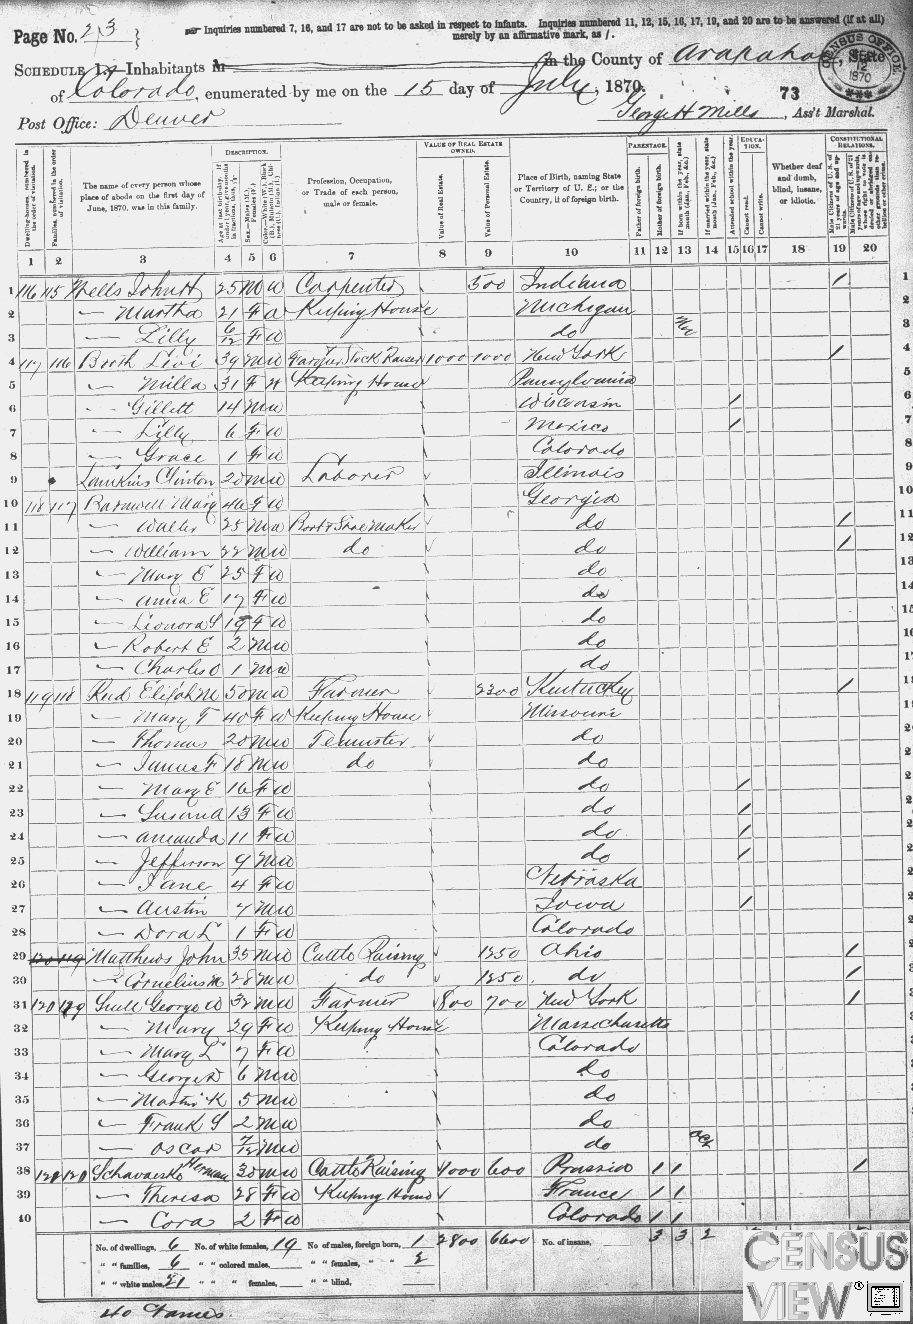 Page No. 23
Inquiries numbered 7, 16, and 17 are not to be asked in respect to infants. Inquiries numbered 11, 12, 15, 16, 17, 19, and 20 are to be answered (if at all)
merely by an affirmative mark, as /.
SCHEDULE 1.—Inhabitants in the County of Arapahoe, State
of Colorado, enumerated by me on the 15 day of July, 1870.
73
Post Office: Denver
George H Mills, Ass't Marshal.
CENSUS OFFICE 12 1870
Dwelling-houses, numbered in the order of visitation.
Families, numbered in the order of visitation.
The name of every person whose place of abode on the first day of June, 1870, was in this family.
DESCRIPTION.
Profession, Occupation, or Trade of each person, male or female.
VALUE OF REAL ESTATE OWNED.
Value of Real Estate.
Value of Personal Estate.
Place of Birth, naming State or Territory of U. S.; or the Country, if of foreign birth.
PARENTAGE.
Father of foreign birth.
Mother of foreign birth.
If born within the year, state month (Jan., Feb., &c.)
If married within the year, state month (Jan., Feb., &c.)
EDUCATION.
Attended school within the year.
Cannot read.
Cannot write.
Whether deaf and dumb, blind, insane, or idiotic.
CONSTITUTIONAL RELATIONS.
1 2 3 4 5 6 7 8 9 10 11 12 13 14 15 16 17 18 19 20
1 116 115 Wells John H 25 M W Carpenter 500 Indiana / 1
2 — Martha 21 F W Keeping House Michigan 2
3 — Lilly 6/12 F W do 3
4 117 116 Booth Livi 39 M W Farmer Stock Raiser 1000 1000 New York / 4
5 — Milla 31 F W Keeping House Pennsylvania 5
6 — Gillett 14 M W Wisconsin / 6
7 — Lilly 6 F W Mexico / 7
8 — Grace 1 F W Colorado 8
9 Clinton 20 M W Laborer Illinois 9
10 118 117 Barnwell Mary 46 F W Georgia 10
11 — Walter 25 M W Boot & Shoe Maker do / 11
12 — William 22 M W do do / 12
13 — Mary E 25 F W do 13
14 — Anna E 17 F W do 14
15 — Leonora S 19 F W do 15
16 — Robert E 2 M W do 16
17 — Charles O 1 M W do 17
18 119 118 Reid Elijah M 50 M W Farmer 2300 Kentucky /
19 — Mary T 40 F W Keeping House Missouri
20 — Thomas 20 M W Teamster do
21 — James F 18 M W do do
22 — Mary E 16 F W do /
23 — Susana 13 F W do /
24 — Amanda 11 F W do /
25 — Jefferson 9 M W do /
26 — Jane 4 F W Nebraska
27 — Austin 7 M W Iowa /
28 — Dora L 1 F W Colorado
29 120 119 Matthews John 35 M W Cattle Raising 1250 Ohio /
30 — Cornelius M 28 M W do 1250 do /
31 120 119 George W 32 M W Farmer 800 700 New York /
32 — Mary 29 F W Keeping House Massachusetts
33 — Mary L 7 F W Colorado
34 — George 6 M W do
35 — Martin K 5 M W do
36 — Frank S 2 M W do
37 — Oscar 7/12 M W do Oct
38 121 120 Herman 30 M W Cattle Raising 1000 600 Prussia 1 1 /
39 — Theresa 28 F W Keeping House France 1 1
40 — Cora 2 F W Colorado 1 1
No. of dwellings, 6 No. of white females, 19 No. of males, foreign born, 1 2800 6600 No. of insane, 3 3 2
" " families, 6 " " colored males, " " females, " " 2
" " white males, 21 " " " females, " " blind,
40 Names.
CENSUS
VIEW